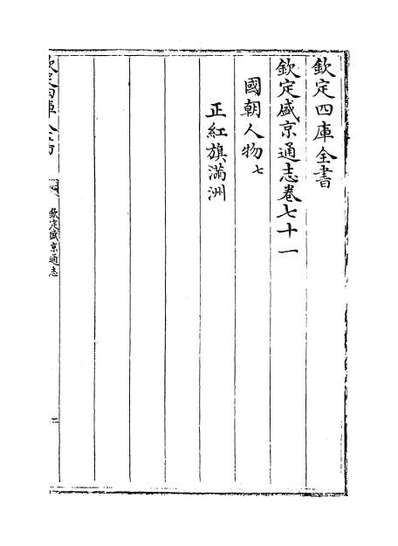 欽定四庫全書
欽定盛京通志卷七十一
國朝人物七
正紅旗滿洲
欽定盛京通志